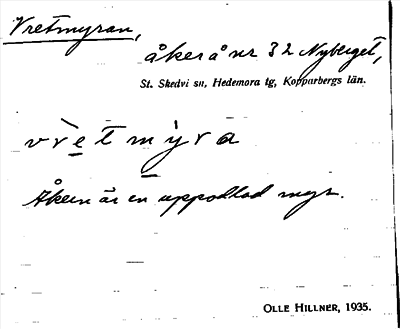 Vretmyran,
åker å nr 32 Nyberget,
St. Skedvi sn, Hedemora tg, Kopparbergs län.
vrètmỳra
Åkern är en uppodlad myr.
OLLE HILLNER, 1935.